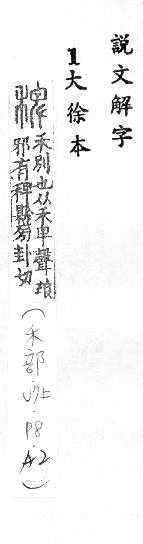 説文解字
1大徐本
禾別也从禾卑聲琅
邪有稗縣㫄卦切
(禾部·7上·P8·A2)